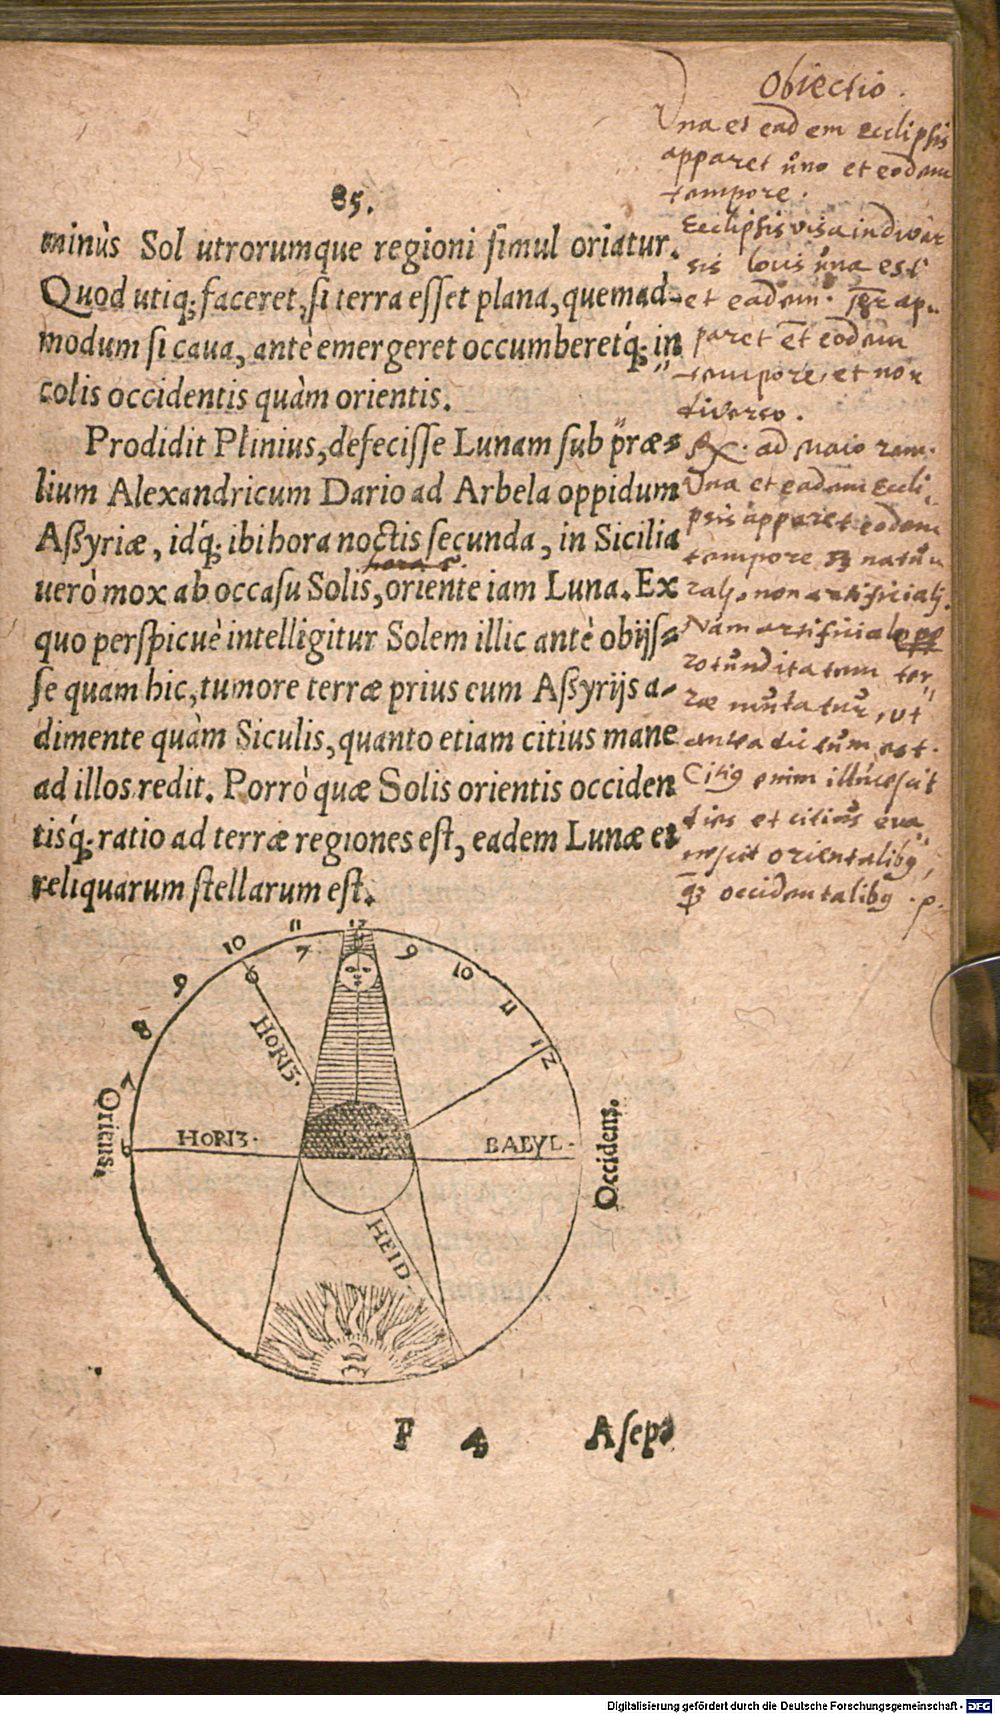 85.
minùs Sol utrorumque regioni simul oriatur.
Quod utiq; faceret, si terra esset plana, quemad-
modum si caua, antè emergeret occumberetq́; in
colis occidentis quàm orientis.
Prodidit Plinius, defecisse Lunam sub præ-
lium Alexandricum Dario ad Arbela oppidum
Aßyriæ, idq́; ibi hora noctis secunda, in Sicilia
hora
uerò mox ab occasu Solis, oriente iam Luna. Ex
quo perspicuè intelligitur Solem illic antè obijs-
se quam hic, tumore terræ prius eum Aßyrijs a-
dimente quàm Siculis, quanto etiam citius mane
ad illos redit. Porrò quæ Solis orientis occiden
tisq́; ratio ad terræ regiones est, eadem Lunæ et
reliquarum stellarum est.
Obiectio.
Una et eadem ecclipsis
apparet uno et eodem
tempore.
Ecclipsis visa in diver
sis locis una est
et eadem. ap-
paret et eodem
tempore, et non
diverso.
ad
Una et eadem Eccli-
psis apparet eodem
tempore natu
rali, non artificiali.
Nam artificiale
rotunditatem ter-
ræ mutatur, ut
antea dictum est.
Citius enim illucescit
dies et citius eva-
nescit orientalibus,
quam occidentalibus.
7 8 9 10 11 12
6 7 8 9 10 11 12
HORIZ.
HORIZ.
BABYL.
HEID.
Oriens.
Occidens.
F 4 Asep-
Digitalisierung gefördert durch die Deutsche Forschungsgemeinschaft - DFG